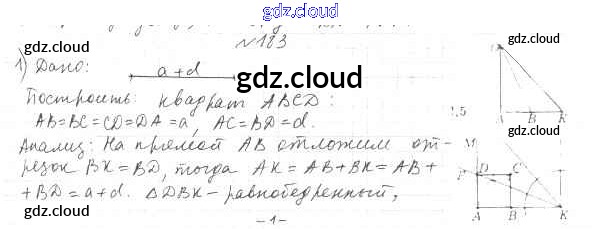 gdz.cloud
№183
gdz.cloud gdz.cloud
1) Дано: a+d
gdz.cloud
Построить: квадрат ABCD:
AB=BC=CD=DA=a, AC=BD=d.
Анализ: На прямой AB отложим от-
резок BK=BD, тогда AK=AB+BK=AB+
+BD=a+d. △DBK – равнобедренный,
gdz.cloud gdz.cloud
–1–
A B K
M
P D C
A B K